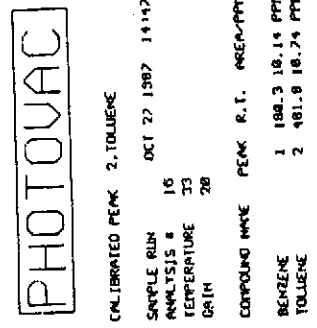 PHOTOVAC
CALIBRATED PEAK 2, TOLUENE
SAMPLE RUN OCT 27 1987 14:47
ANALYSIS # 16
TEMPERATURE 33
GAIN 20
COMPOUND NAME PEAK R.T. AREA/PPM
BENZENE 1 180.3 10.14 PPM
TOLUENE 2 401.8 10.74 PPM